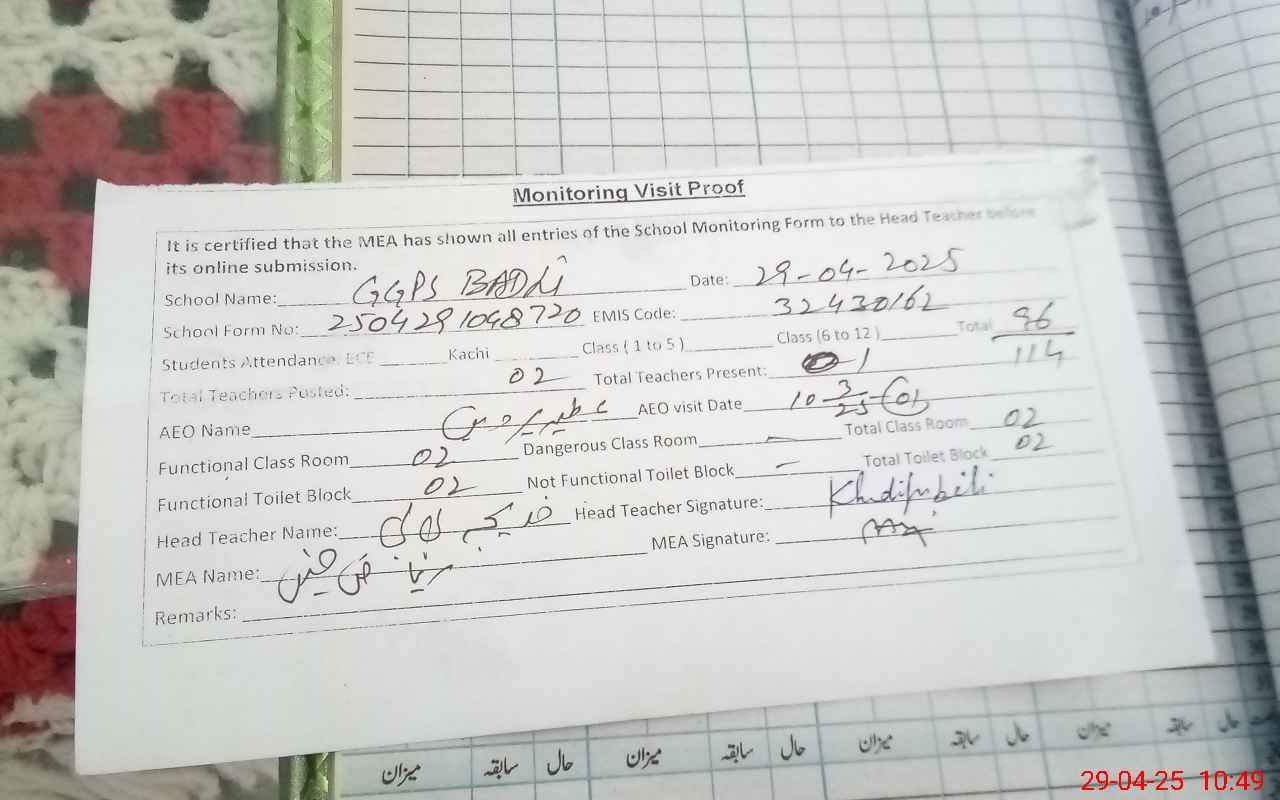 Monitoring Visit Proof
It is certified that the MEA has shown all entries of the School Monitoring Form to the Head Teacher before
its online submission.
School Name: GGPS BADLI Date: 29-04-2025
School Form No: 2504291048720 EMIS Code: 32430162
Students Attendance: ECE Kachi Class ( 1 to 5 ) Class (6 to 12 ) Total 96
114
Total Teachers Posted: 02 Total Teachers Present: 01
AEO Name AEO visit Date 10-3-25 (01)
Functional Class Room 02 Dangerous Class Room — Total Class Room 02
Functional Toilet Block 02 Not Functional Toilet Block — Total Toilet Block 02
Head Teacher Name: Head Teacher Signature:
MEA Name: ریاض حسین MEA Signature:
Remarks:
میزان سابقہ حال میزان سابقہ حال میزان سابقہ حال میزان سابقہ حال
29-04-25 10:49